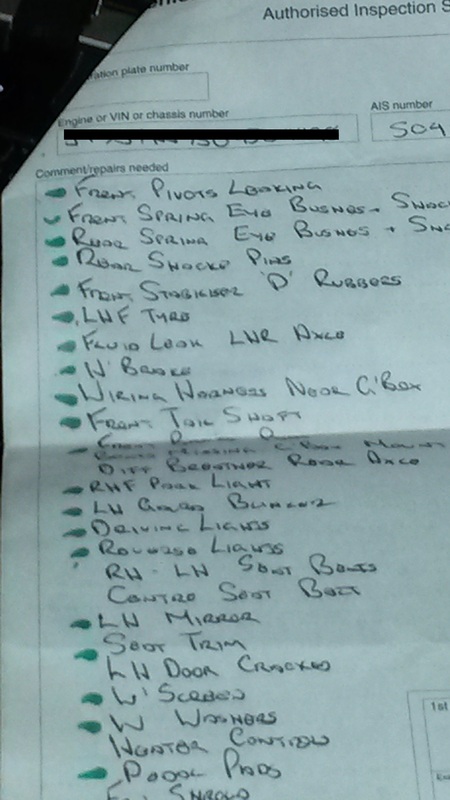 Authorised Inspection S
ation plate number
Engine or VIN or chassis number
AIS number
504
Comment/repairs needed
FRONT PIVOTS LEAKING
FRONT SPRING EYE BUSHES + SHOC
REAR SPRING EYE BUSHES + SHO
REAR SHOCKS PINS
FRONT STABILISER 'D' RUBBERS
LHF TYRE
FLUID LEAK LHR AXLE
H' BRAKE
WIRING HARNESS NEAR G'BOX
FRONT TAIL SHAFT
DIFF BREATHER REAR AXLE
RHF PARK LIGHT
LH GRARD BLINKER
DRIVING LIGHTS
REVERSE LIGHTS
RH - LH SEAT BELTS
CENTRE SEAT BELT
LH MIRROR
SEAT TRIM
LH DOOR CRACKED
W'SCREEN
W WASHERS
HEATER CONTROL
PEDAL PADS
SHROUD
1st